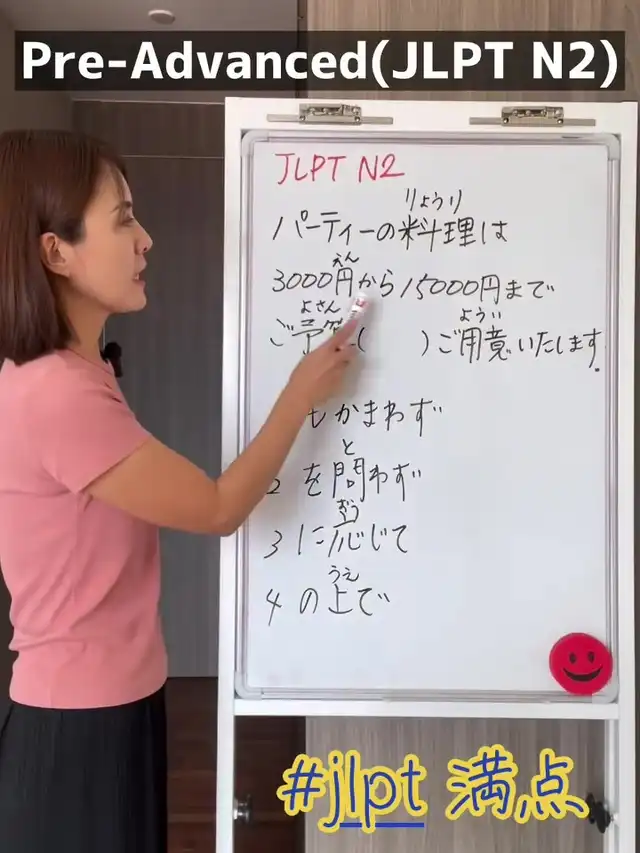 Pre-Advanced(JLPT N2)
JLPT N2
りょうり
パーティーの料理は
えん
3000円から15000円まで
よさん ようい
ご予算( )ご用意いたします.
もかまわず
と
2 を問わず
おう
3 に応じて
うえ
4 の上で
#jlpt 満点